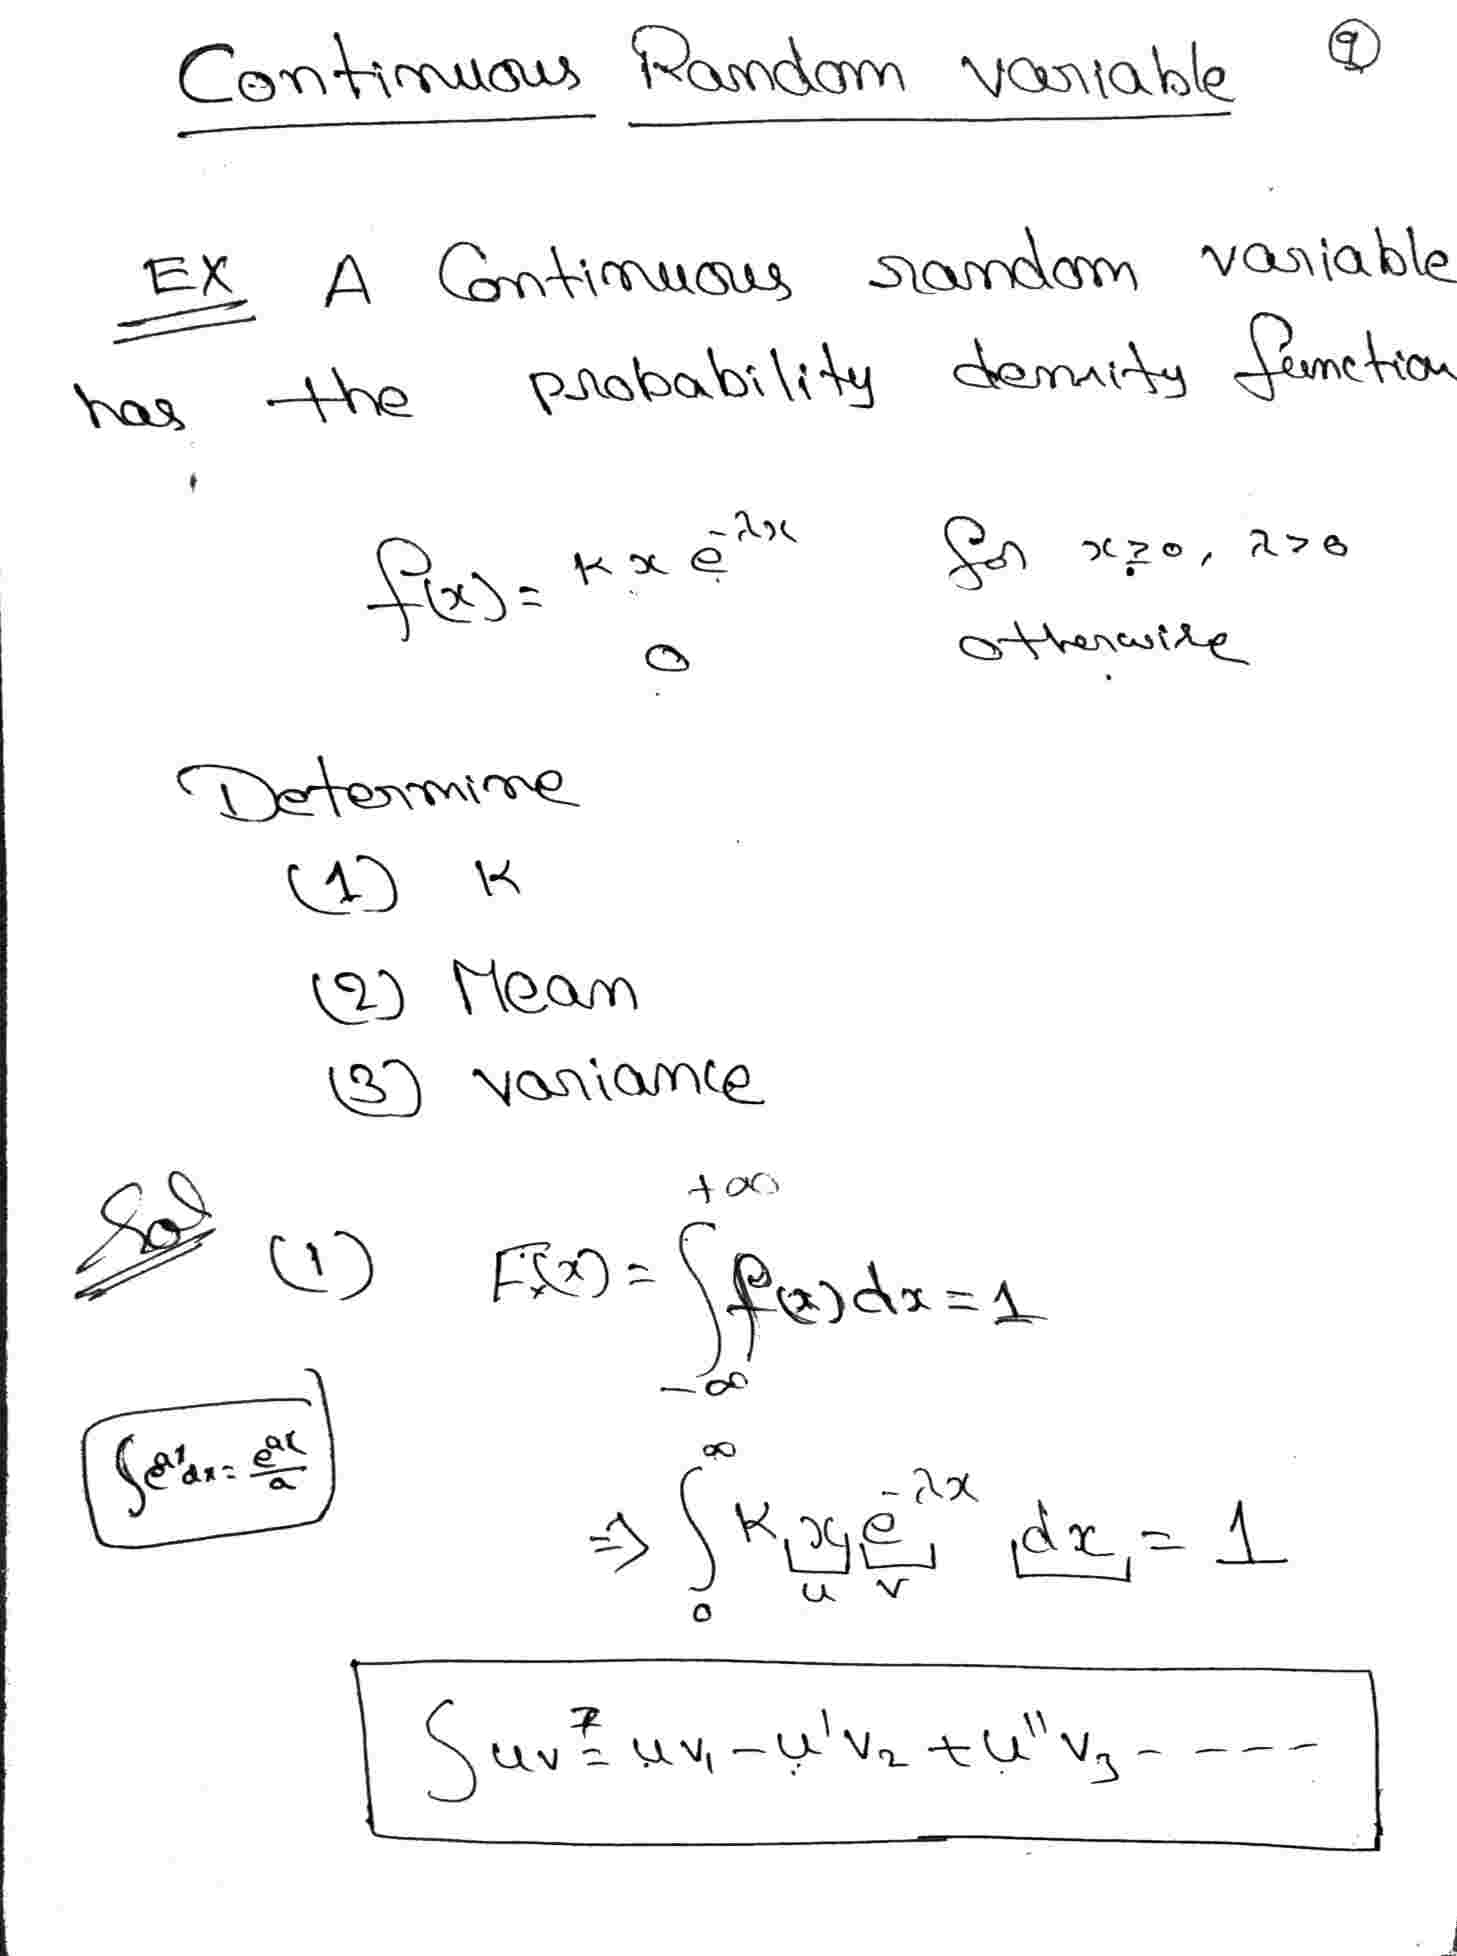 Continuous Random variable ①
EX A Continuous random variable
has the probability density function
f(x) = K x e^{-λx} for x ≥ 0, λ > 0
0 otherwise
Determine
(1) K
(2) Mean
(3) variance
Sol (1) F_x(x) = ∫_{-∞}^{+∞} f(x) dx = 1
∫e^{ax} dx = e^{ax}/a
⇒ ∫_0^∞ K x e^{-λx} dx = 1
u v
∫uv = uv₁ - u'v₂ + u''v₃ - - - - -